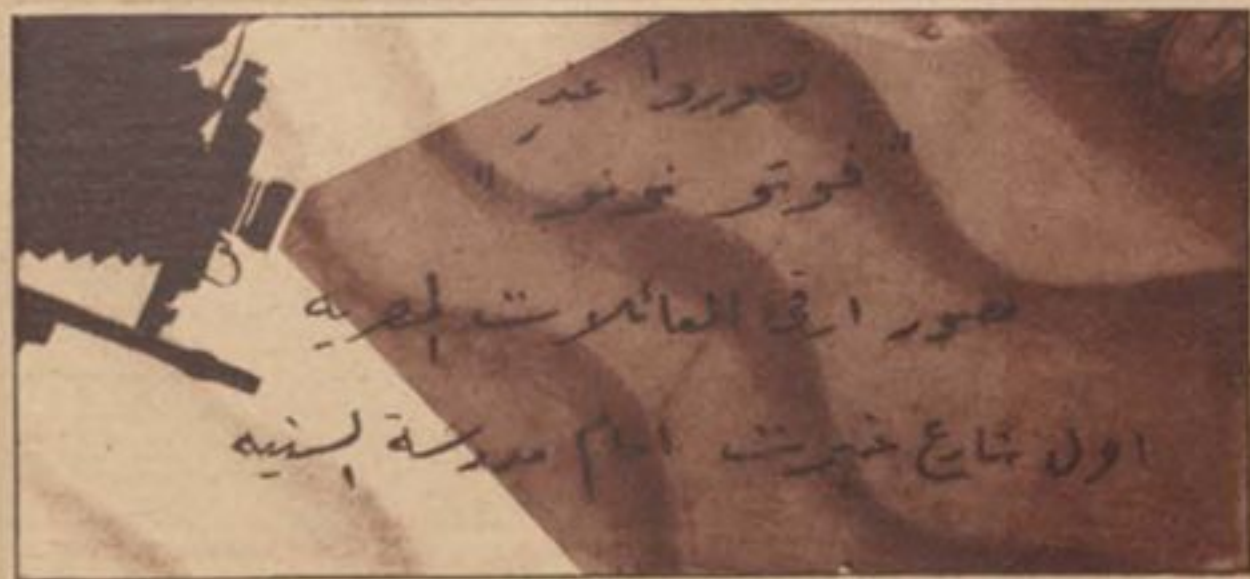 صوروا عند
" فوتو نونو "
مصور ارقى العائلات المصريه
اول شارع خيرت امام مدرسة السنيه